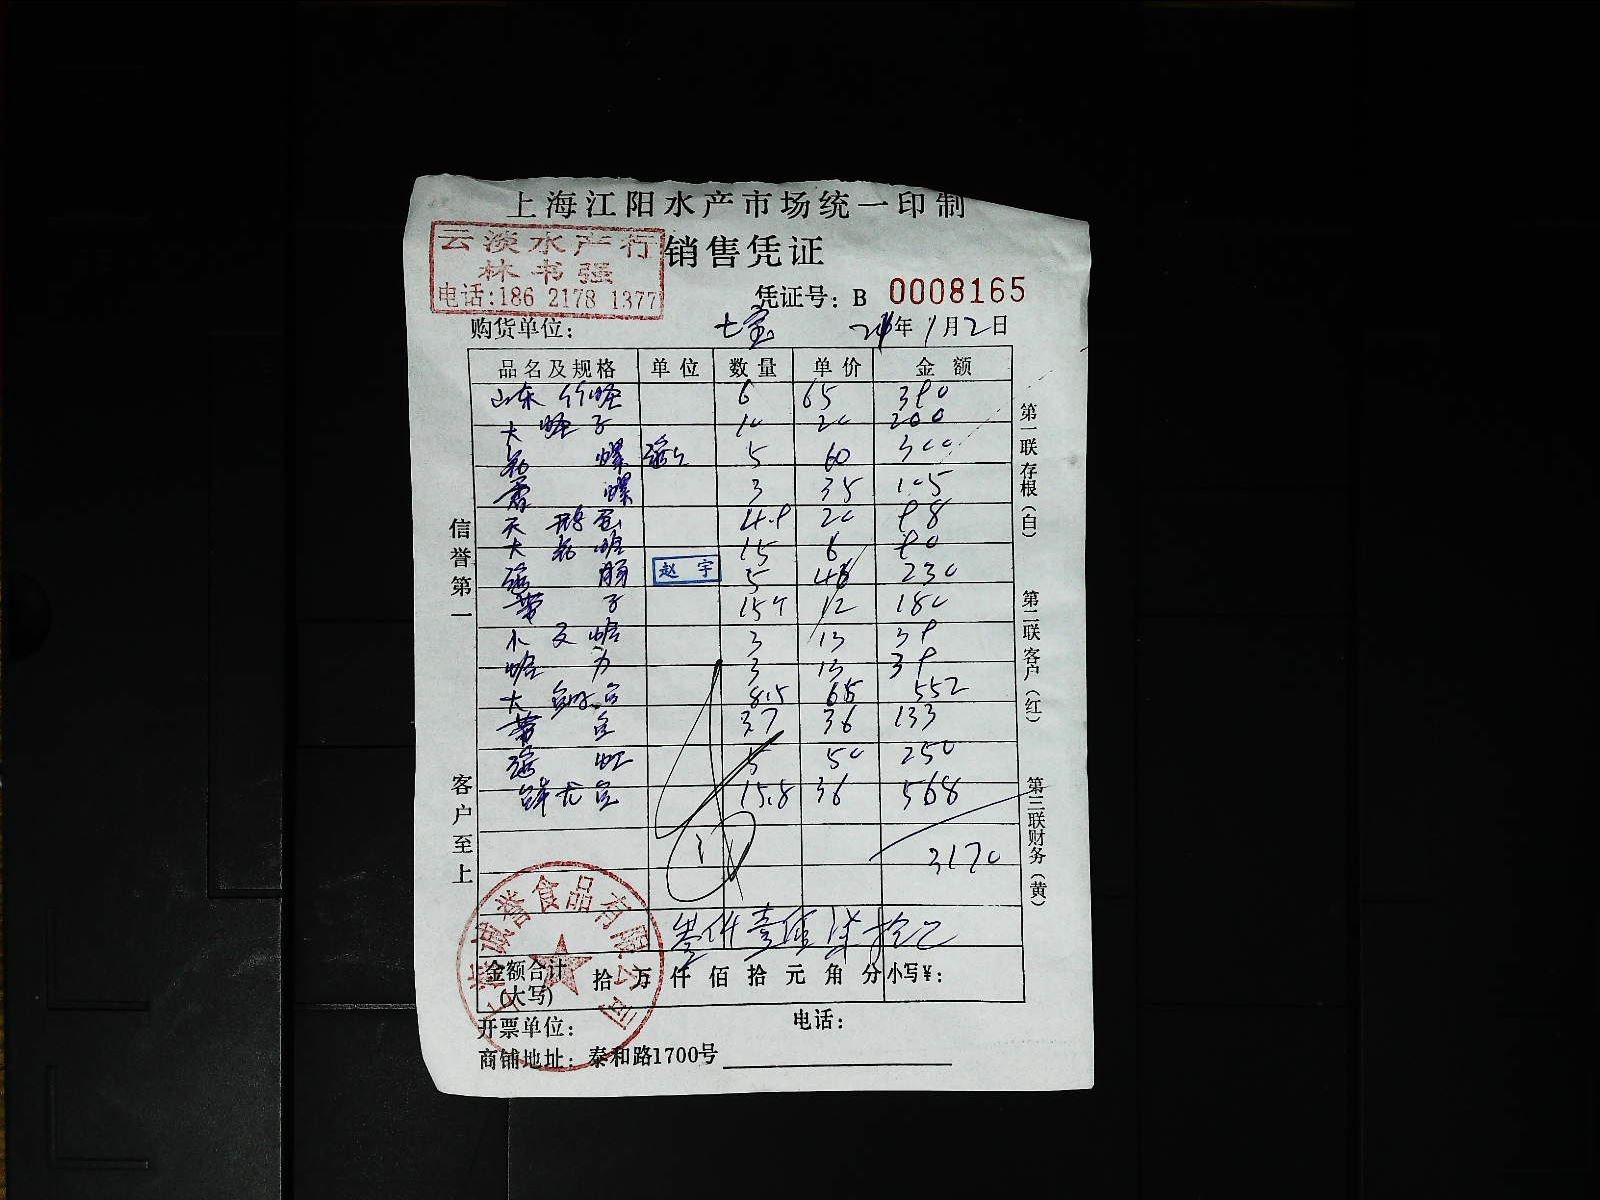 上海江阳水产市场统一印制
云淡水产行
林书强
电话:186 2178 1377
销售凭证
凭证号: B 0008165
购货单位: 七宝 年1月2日
品名及规格 单位 数量 单价 金额
山东竹蛏 6 65 390
大蛏子 10 20 200
螺 5 60 300
螺 3 35 105
天鹅蛋 4.9 20 98
大 蛤 15 6 90
赵宇
5 46 230
带子 15 12 180
小 蛤 3 13 39
蛤 3 13 39
大 鱼 8.5 65 552
鱼 3.7 36 133
虹 5 50 250
鱼 15.8 36 568
3170
叁仟壹佰柒拾
金额合计
(大写) 拾 万 仟 佰 拾 元 角 分 小写¥:
开票单位: 电话:
商铺地址: 泰和路1700号
信誉第一
客户至上
第一联存根(白)
第二联客户(红)
第三联财务(黄)
上海诚誉食品有限公司